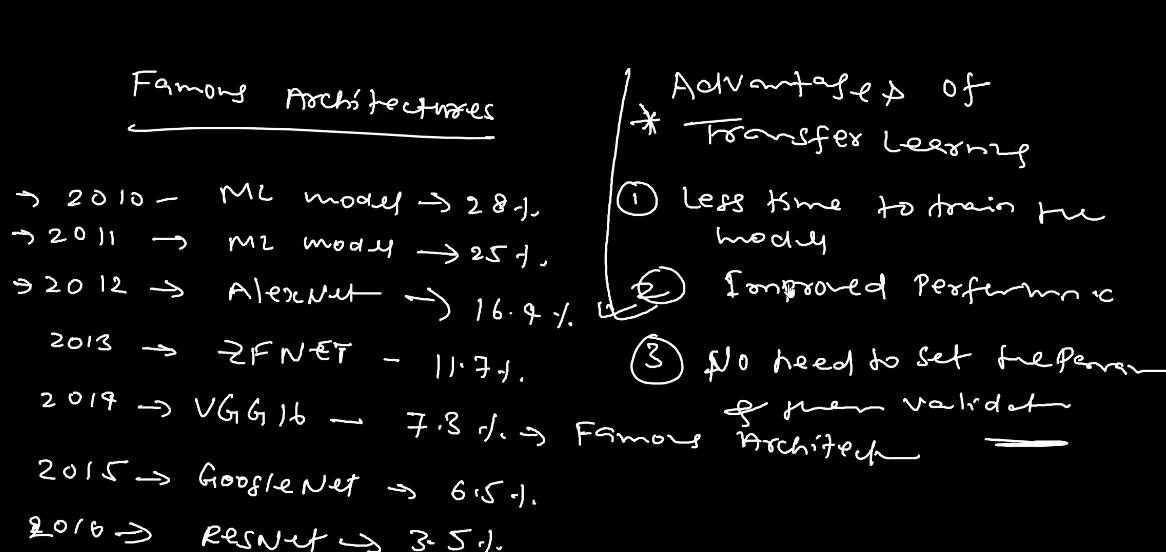 Famous Architectures
→ 2010 - ML model → 28%.
→ 2011 → ML model → 25%.
→ 2012 → AlexNet → 16.4%.
2013 → ZFNET - 11.7%.
2014 → VGG16 - 7.3%. → Famous Architect
2015 → GoogleNet → 6.5%.
2016 → ResNet → 3.5%.
* Advantages of
Transfer Learning
① Less time to train the
model
② Improved Performanc
③ No need to set the Param
& them validat